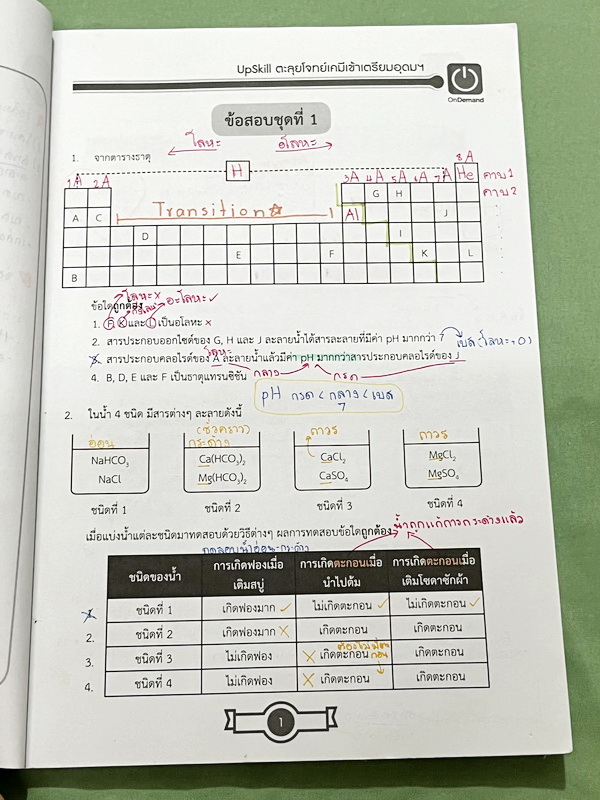 UpSkill ตะลุยโจทย์เคมีเข้าเตรียมอุดมฯ
OnDemand
ข้อสอบชุดที่ 1
โลหะ อโลหะ
1. จากตารางธาตุ
8A
1A 2A H 3A 4A 5A 6A 7A He คาบ 1
G H คาบ 2
A C Transition Al J
D I
E F K L
B
โลหะ x
กึ่งโลหะ อะโลหะ ✓
ข้อใดถูกต้อง
1. F K และ L เป็นอโลหะ x
2. สารประกอบออกไซด์ของ G, H และ J ละลายน้ำได้สารละลายที่มีค่า pH มากกว่า 7 เบส (โลหะ+O)
โลหะ
3. สารประกอบคลอไรด์ของ A ละลายน้ำแล้วมีค่า pH มากกว่าสารประกอบคลอไรด์ของ J
กลาง กรด
4. B, D, E และ F เป็นธาตุแทรนซิชัน
pH กรด < กลาง < เบส
7
2. ในน้ำ 4 ชนิด มีสารต่างๆ ละลายดังนี้
อ่อน (ชั่วคราว) กระด้าง ถาวร ถาวร
NaHCO₃ Ca(HCO₃)₂ CaCl₂ MgCl₂
NaCl Mg(HCO₃)₂ CaSO₄ MgSO₄
ชนิดที่ 1 ชนิดที่ 2 ชนิดที่ 3 ชนิดที่ 4
น้ำถูกแก้การกระด้างแล้ว
เมื่อแบ่งน้ำแต่ละชนิดมาทดสอบด้วยวิธีต่างๆ ผลการทดสอบข้อใดถูกต้อง
ทดสอบน้ำอ่อน-กระด้าง
ชนิดของน้ำ การเกิดฟองเมื่อเติมสบู่ การเกิดตะกอนเมื่อนำไปต้ม การเกิดตะกอนเมื่อเติมโซดาซักผ้า
1. ชนิดที่ 1 เกิดฟองมาก ✓ ไม่เกิดตะกอน ✓ ไม่เกิดตะกอน ✓
2. ชนิดที่ 2 เกิดฟองมาก X เกิดตะกอน เกิดตะกอน
ต้องไม่มีตะกอน
3. ชนิดที่ 3 ไม่เกิดฟอง X เกิดตะกอน เกิดตะกอน
4. ชนิดที่ 4 ไม่เกิดฟอง X เกิดตะกอน เกิดตะกอน
1